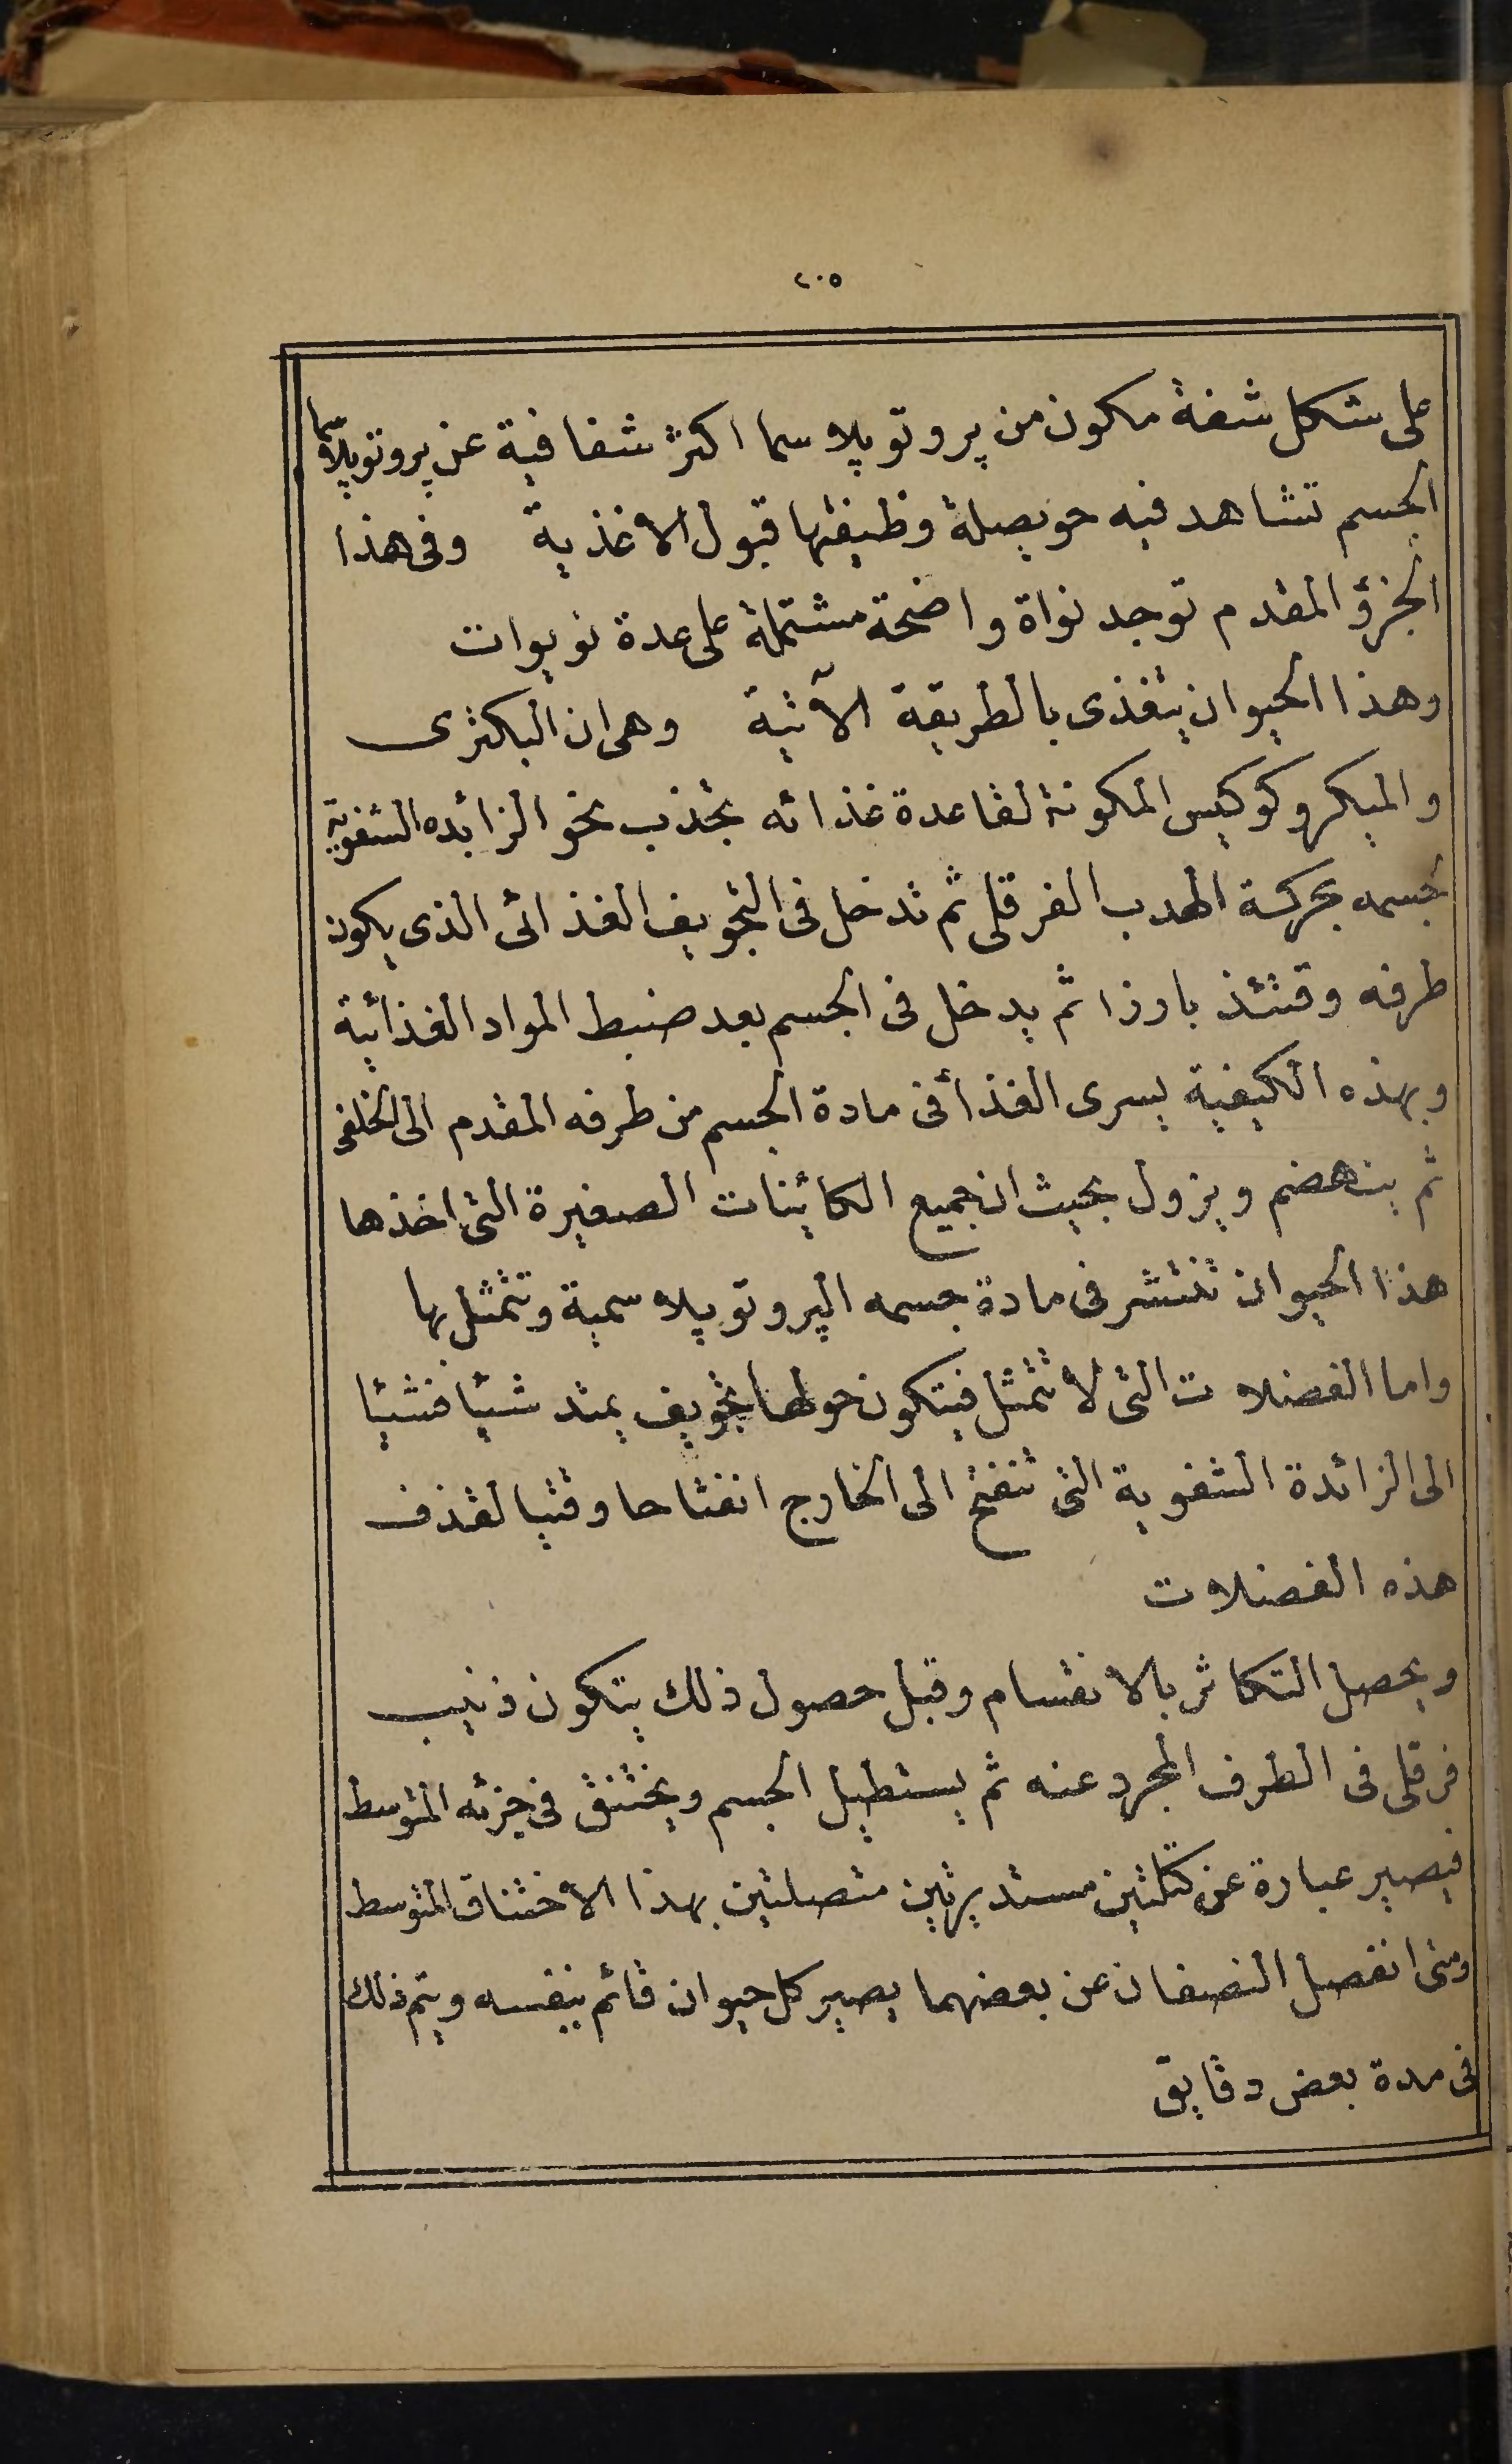 ٢٠٥
على شكل شفة مكون من پروتوپلاسما اكثر شفافية عن پروتوپلاسما
الجسم تشاهد فيه حويصلة وظيفتها قبول الاغذية وفى هذا
الجزؤ المقدم توجد نواة واضحة مشتملة على عدة نويوات
وهذا الحيوان يتغذى بالطريقة الآتية وهى ان البكترى
والميكروكوكيس المكونة لقاعدة غذائه تجذب نحو الزائده الشفوية
لجسمه بحركة الهدب الفرقلى ثم تدخل فى التجويف الغذائى الذى يكون
طرفه وقتئذ بارزا ثم يدخل فى الجسم بعد ضبط المواد الغذائية
وبهذه الكيفية يسرى الغذأ فى مادة الجسم من طرفه المقدم الى الخلفى
ثم ينهضم ويزول بحيث ان جميع الكائنات الصغيرة التى اخذها
هذا الحيوان تنتشر فى مادة جسمه الپروتوپلاسمية وتتمثل بها
واما الفضلات التى لا تتمثل فيتكون حولها تجويف يمتد شيئا فشيئا
الى الزائدة الشفوية التى تنفتح الى الخارج انفتاحا وقتيا لقذف
هذه الفضلات
ويحصل التكاثر بالانقسام وقبل حصول ذلك يتكون ذنيب
فرقلى فى الطرف المجرد عنه ثم يستطيل الجسم ويختنق فى جزئه المتوسط
فيصير عبارة عن كتلتين مستديرتين متصلتين بهذا الاختناق المتوسط
ومتى انفصل النصفان عن بعضهما يصير كل حيوان قائم بنفسه ويتم ذلك
فى مدة بعض دقايق